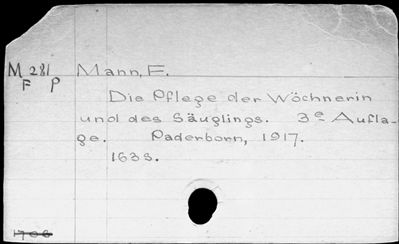 M 281 Mann, F.
F P
Die Pflege der Wöchnerin
und des Säuglings. 3e Aufla-
ge. Paderborn, 1917.
163s.
1706